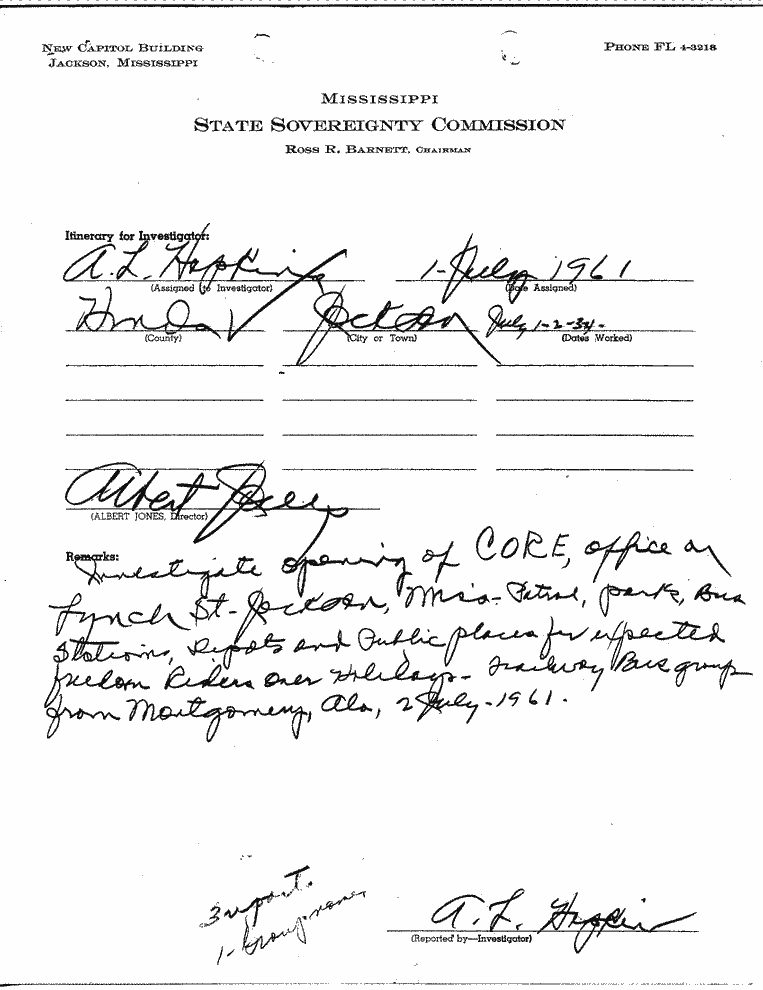 NEW CAPITOL BUILDING
JACKSON, MISSISSIPPI
PHONE FL 4-3218
MISSISSIPPI
STATE SOVEREIGNTY COMMISSION
ROSS R. BARNETT, CHAIRMAN
Itinerary for Investigator:
A. L. Hopkins 1-July 1961
(Assigned to Investigator) (Date Assigned)
Hinds Jackson July 1-2-3-4-
(County) (City or Town) (Dates Worked)
Albert Jones
(ALBERT JONES, Director)
Remarks:
Investigate opening of CORE, office on
Lynch St- Jackson, Miss- Patrol, parks, Bus
Stations, Depots and Public places for expected
freedom Riders over Holidays- Trailway Bus group
from Montgomery, Ala, 2 July-1961.
3 report.
1- Group names
A. L. Hopkins
(Reported by—Investigator)